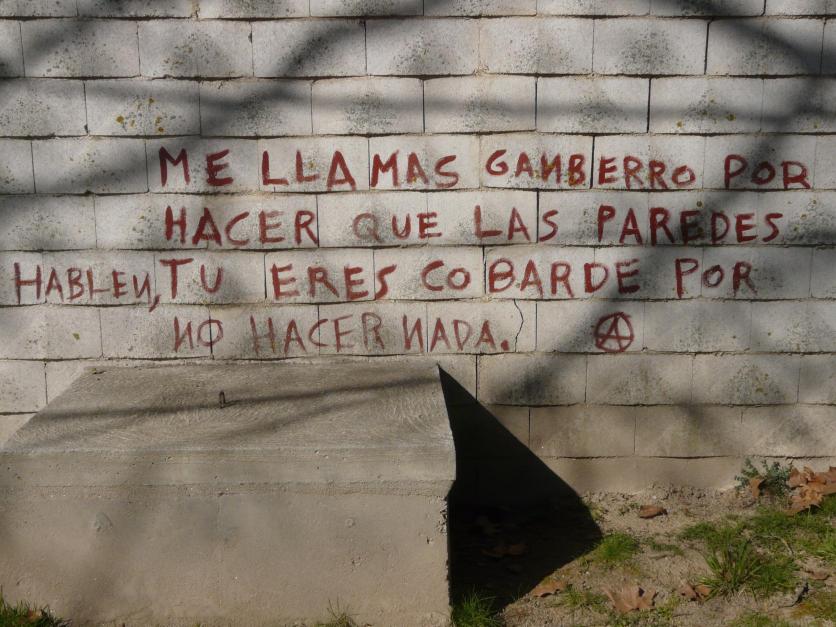 ME LLAMAS GANBERRO POR
HACER QUE LAS PAREDES
HABLEN, TU ERES COBARDE POR
NO HACER NADA. Ⓐ